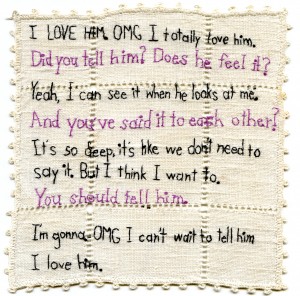 I LOVE HIM. OMG I totally love him.
Did you tell him? Does he feel it?
Yeah, I can see it when he looks at me.
And you've said it to each other?
It's so deep, it's like we don't need to
say it. But I think I want to.
You should tell him.
I'm gonna OMG I can't wait to tell him
I love him.